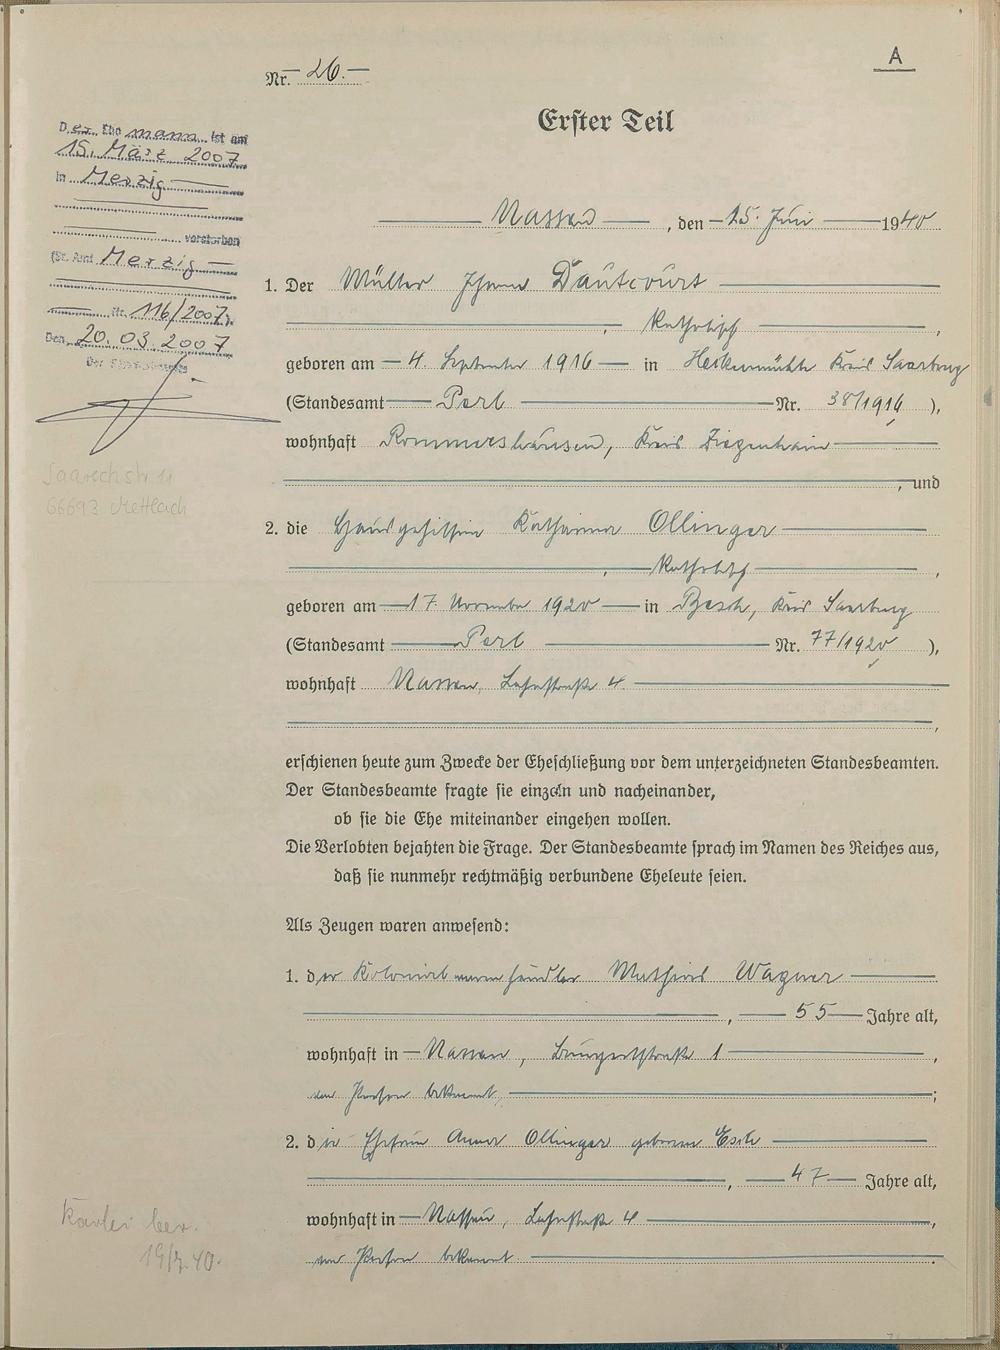 A
Nr. 26.
Erster Teil
Der Ehemann ist am
15. März 2007
in Merzig
verstorben
(St. Amt Merzig
Nr. 116/2007).
Den 20.03.2007
Der Standesbeamte
Saarechstr. 11
66693 Mettlach
Nassau, den 15. Juni 1940
1. Der Müller Johann Dautcourt
, katholisch,
geboren am 4. September 1916 in Heckenmühle Kreis Saarburg
(Standesamt Perl Nr. 38/1916),
wohnhaft Rommershausen, Kreis Ziegenhain
, und
2. die Hausgehilfin Katharina Ollinger
, katholisch,
geboren am 17. November 1920 in Besch, Kreis Saarburg
(Standesamt Perl Nr. 77/1920),
wohnhaft Nassau, Lahnstraße 4
,
erschienen heute zum Zwecke der Eheschließung vor dem unterzeichneten Standesbeamten.
Der Standesbeamte fragte sie einzeln und nacheinander,
ob sie die Ehe miteinander eingehen wollen.
Die Verlobten bejahten die Frage. Der Standesbeamte sprach im Namen des Reiches aus,
daß sie nunmehr rechtmäßig verbundene Eheleute seien.
Als Zeugen waren anwesend:
1. der Kolonialwarenhändler Mathias Wagner
, 55 Jahre alt,
wohnhaft in Nassau, 1,
von Person bekannt;
2. die Ehefrau Anna Ollinger geborene
, 47 Jahre alt,
wohnhaft in Nassau, Lahnstraße 4,
von Person bekannt.
Kartei ber.
19/7.40.